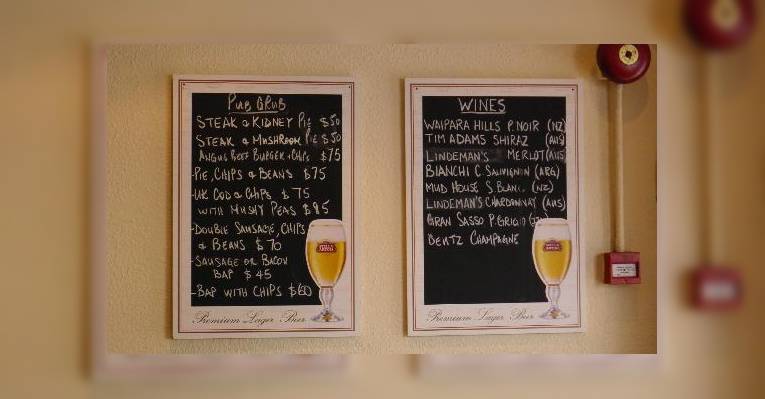 PUB GRUB
STEAK & KIDNEY PIE $50
STEAK & MUSHROOM PIE $50
ANGUS BEEF BURGER + CHIPS $75
-PIE, CHIPS & BEANS $75
-UK COD & CHIPS $75
WITH MUSHY PEAS $85
-DOUBLE SAUSAGE, CHIPS
& BEANS $70
-SAUSAGE OR BACON
BAP $45
-BAP WITH CHIPS $60
STELLA ARTOIS
Premium Lager Beer
WINES
WAIPARA HILLS P. NOIR (NZ)
TIM ADAMS SHIRAZ (AUS)
LINDEMAN'S MERLOT (AUS)
BIANCHI C. SAUVIGNON (ARG)
MUD HOUSE S. BLANC. (NZ)
LINDEMAN'S CHARDONNAY (AUS)
GRAN SASSO P. GRIGIO
DEUTZ CHAMPAGNE
STELLA ARTOIS
Premium Lager Beer